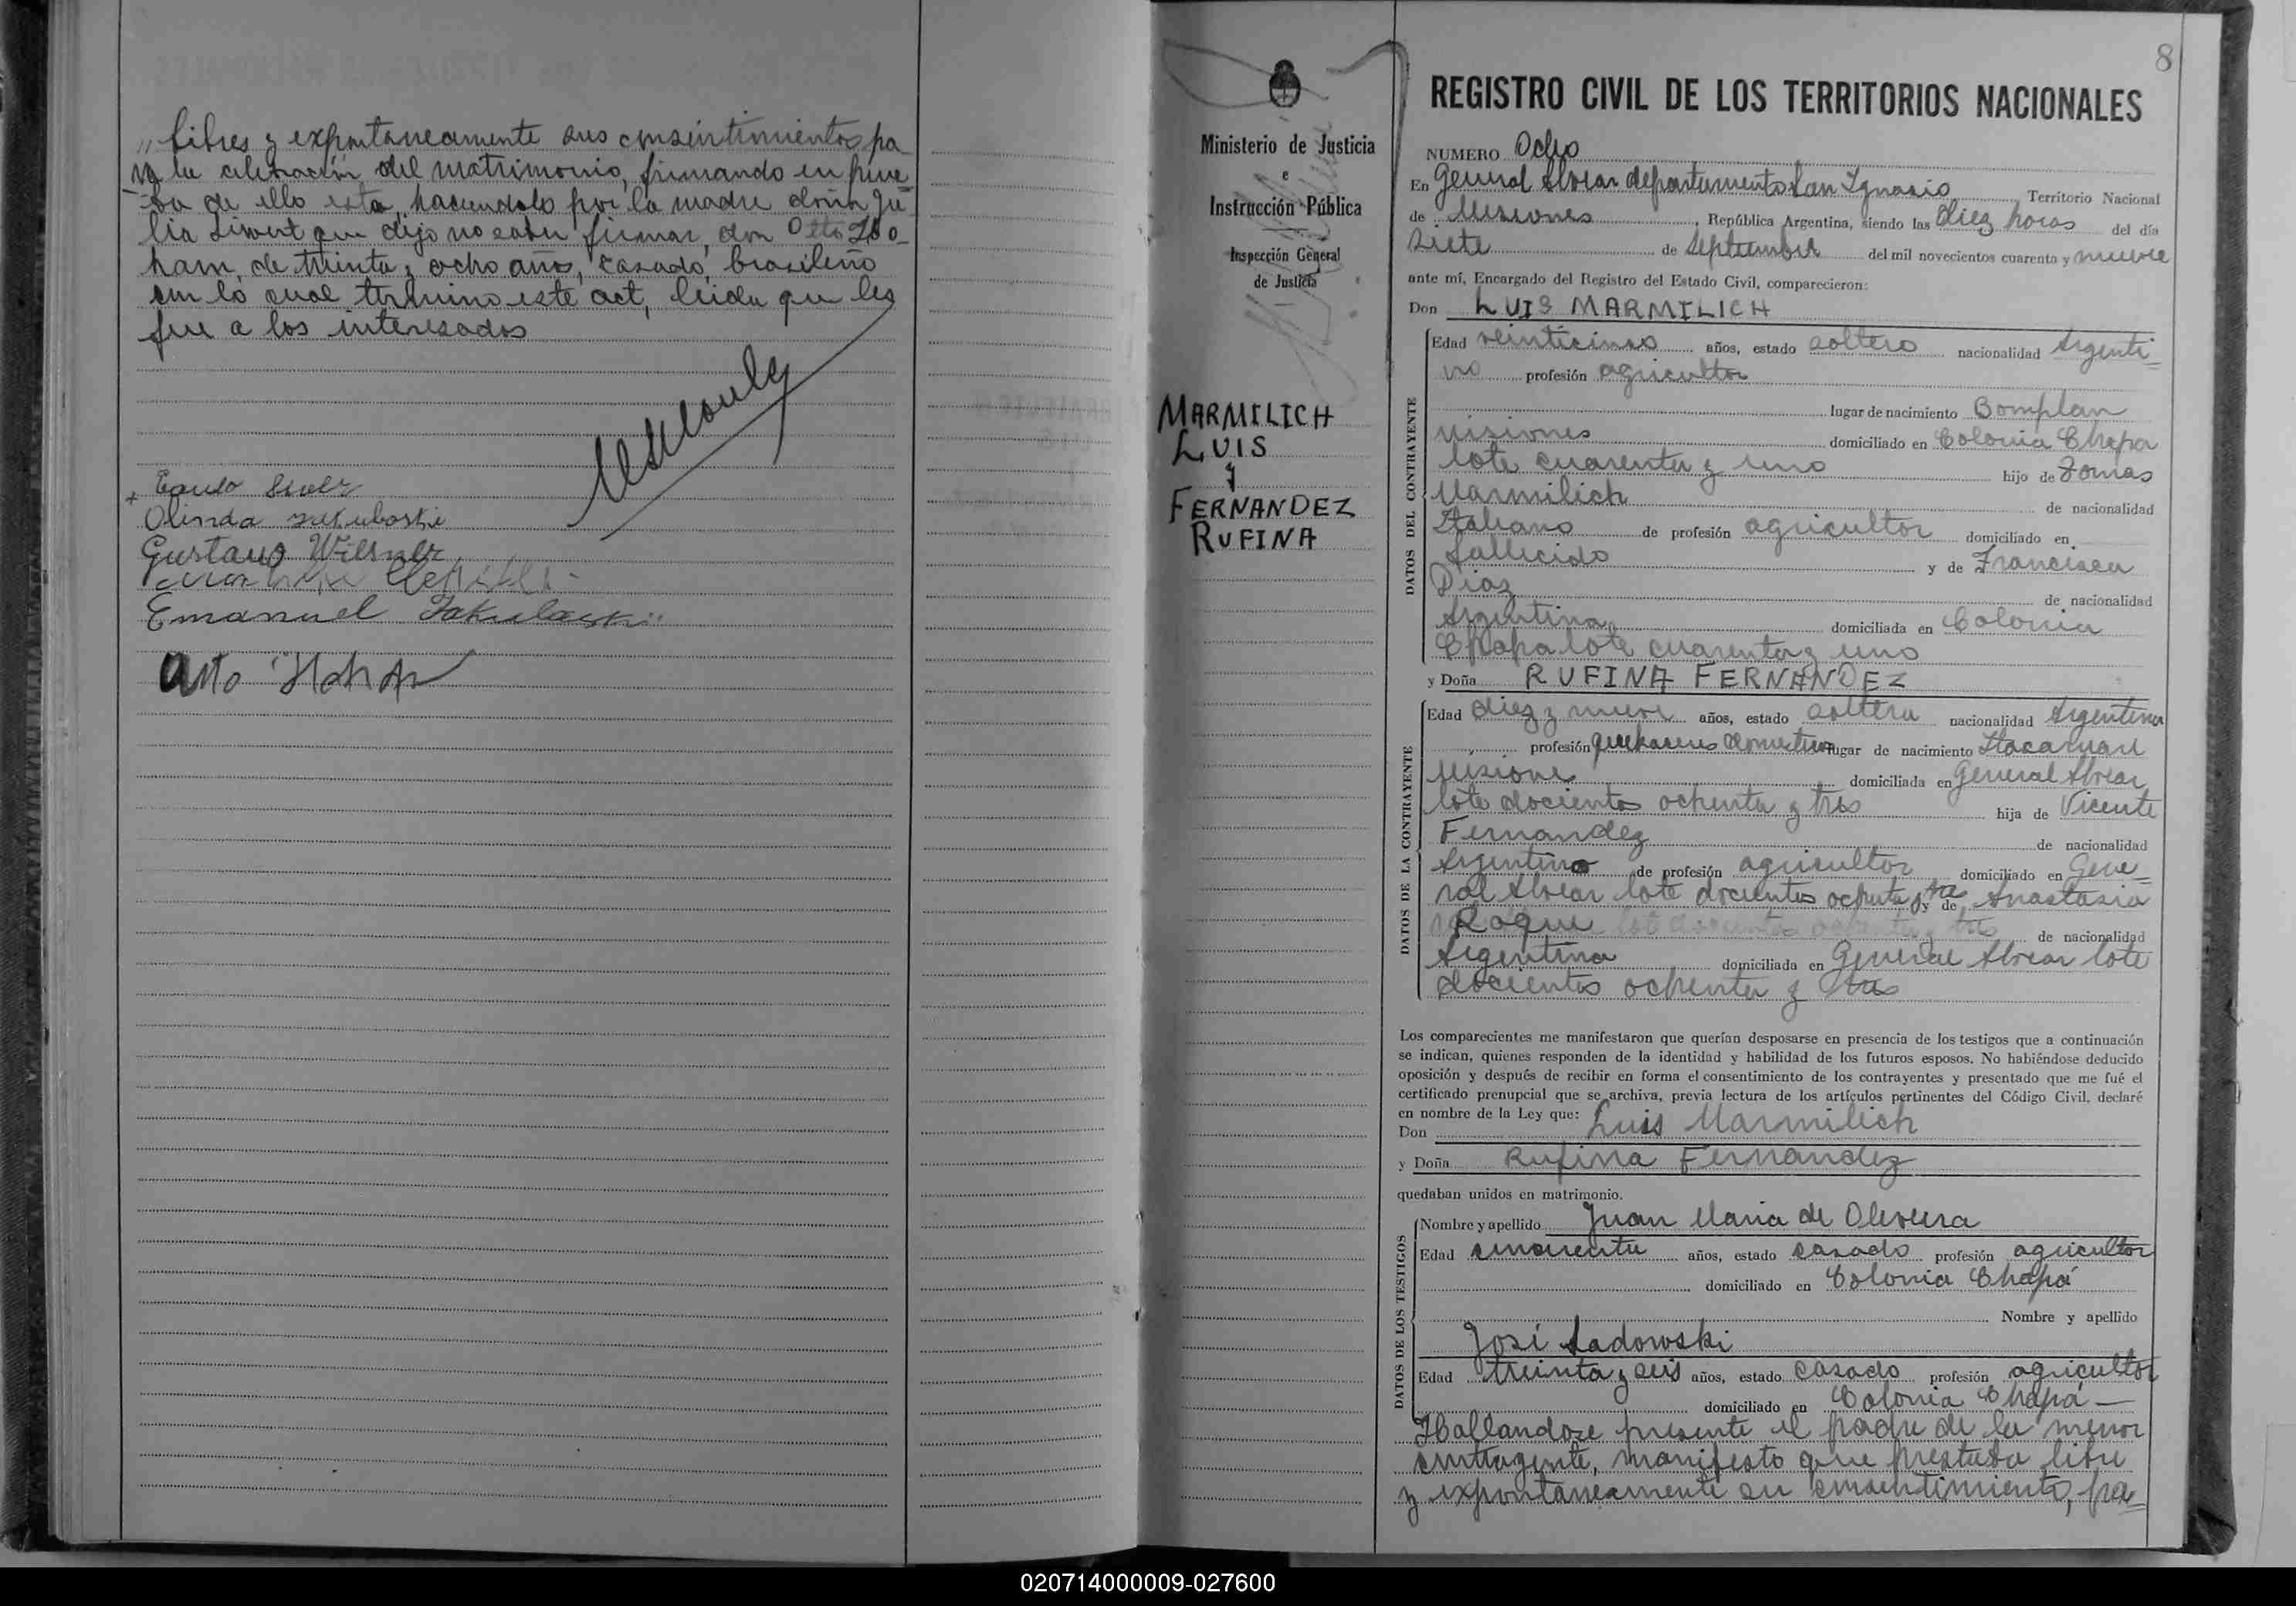 libres y expontaneamente sus consintimientos pa
ra la celebración del matrimonio, firmando en prue
ba de ello esta, haciendolo por la madre doña Ju
lia Siwert que dijo no saber firmar, don Otto
ham, de treinta y ocho años, casado, brasileño
con lo cual termino este act, leida que les
fue a los interesados
Olinda
Gustavo
Emanuel
8
REGISTRO CIVIL DE LOS TERRITORIOS NACIONALES
Ministerio de Justicia
e
Instrucción Pública
Inspección General
de Justicia
MARMILICH
LUIS
y
FERNANDEZ
RUFINA
NUMERO Ocho
En General Alvear departamento San Ignacio Territorio Nacional
de Misiones, República Argentina, siendo las diez horas del día
siete de Septiembre del mil novecientos cuarenta y nueve
ante mí, Encargado del Registro del Estado Civil, comparecieron:
Don LUIS MARMILICH
DATOS DEL CONTRAYENTE
Edad veinticinco años, estado soltero nacionalidad Argenti=
no profesión agricultor
lugar de nacimiento Bomplan
Misiones domiciliado en Colonia Chapa
lote cuarenta y uno hijo de Tomas
Marmilich de nacionalidad
Italiano de profesión agricultor domiciliado en
fallecido y de Francisca
Diaz de nacionalidad
Argentina domiciliada en Colonia
Chapa lote cuarenta y uno
y Doña RUFINA FERNANDEZ
DATOS DE LA CONTRAYENTE
Edad diez y nueve años, estado soltera nacionalidad Argentina
profesión quehaceres domesticos lugar de nacimiento Itacaruaré
Misiones domiciliada en General Alvear
lote docientos ochenta y tres hija de Vicente
Fernandez de nacionalidad
Argentino de profesión agricultor domiciliado en Gene=
ral Alvear lote docientos ochenta y tres y de Anastasia
Roque de nacionalidad
Argentina domiciliada en General Alvear lote
docientos ochenta y tres
Los comparecientes me manifestaron que querían desposarse en presencia de los testigos que a continuación
se indican, quienes responden de la identidad y habilidad de los futuros esposos. No habiéndose deducido
oposición y después de recibir en forma el consentimiento de los contrayentes y presentado que me fué el
certificado prenupcial que se archiva, previa lectura de los artículos pertinentes del Código Civil, declaré
en nombre de la Ley que:
Don Luis Marmilich
y Doña Rufina Fernandez
quedaban unidos en matrimonio.
DATOS DE LOS TESTIGOS
Nombre y apellido Juan Maria de Olivera
Edad cincuenta años, estado casado profesión agricultor
domiciliado en Colonia Chapá
Nombre y apellido
José Sadowski
Edad treinta y seis años, estado casado profesión agricultor
domiciliado en Colonia Chapá —
Hallandose presente el padre de la menor
contrayente, manifesto que prestaba libre
y expontaneamente su consentimiento, pa=
020714000009-027600